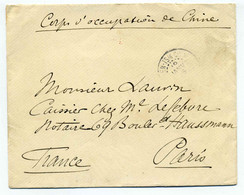 Corps d'occupation de Chine
Monsieur Laurin
Caissier chez Mr. Lefebvre
Notaire 69 Boulevt. Haussmann
France Paris